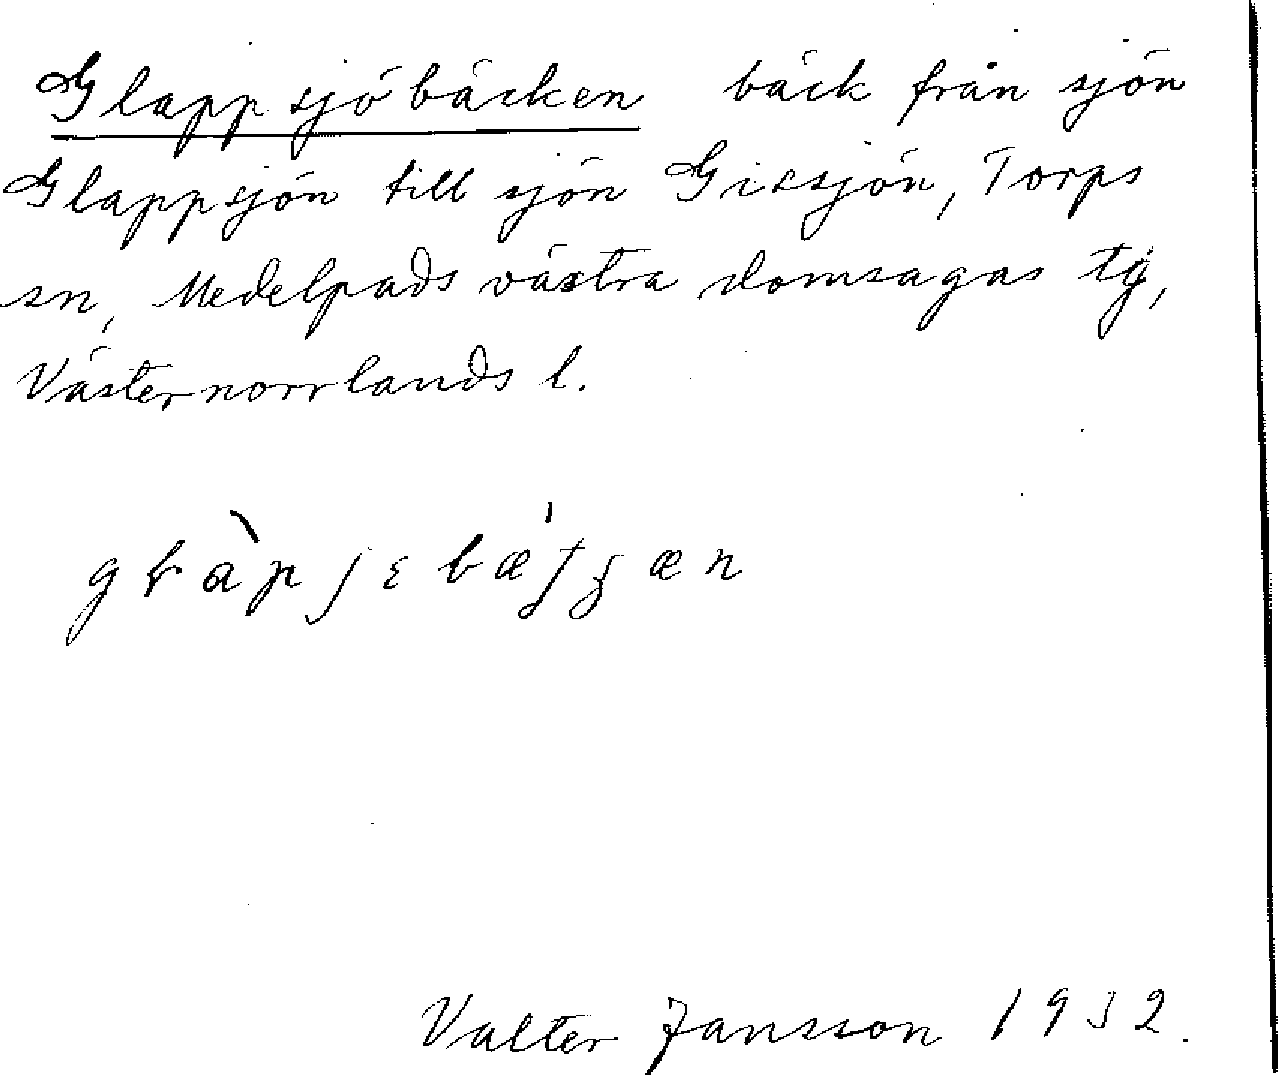 Glappsjöbäcken bäck från sjön
Glappsjön till sjön Gissjön, Torps
sn, Medelpads västra domsagas tg,
Västernorrlands l.
Valter Jansson 1932.